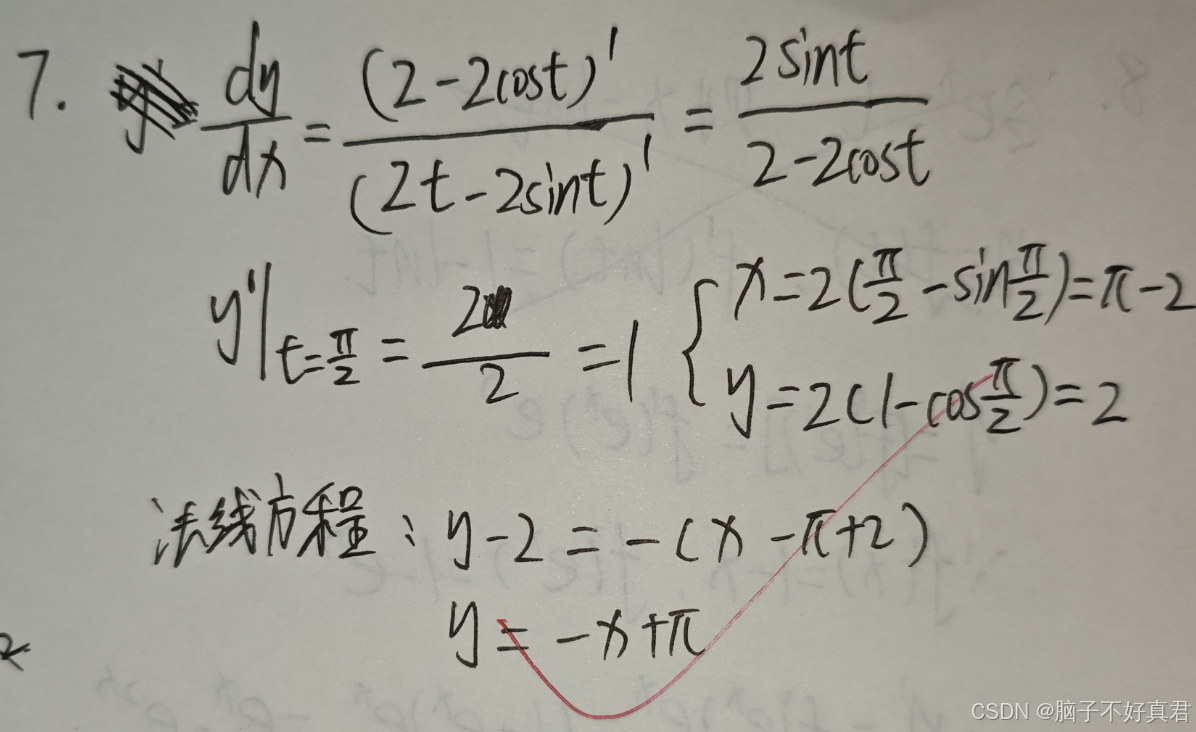 7. dy/dx = (2-2cost)'/(2t-2sint)' = 2sint/(2-2cost)
y'|t=π/2 = 2/2 = 1 { x=2(π/2-sinπ/2)=π-2
y=2(1-cosπ/2)=2
法线方程: y-2=-(x-π+2)
y=-x+π
CSDN @脑子不好真君